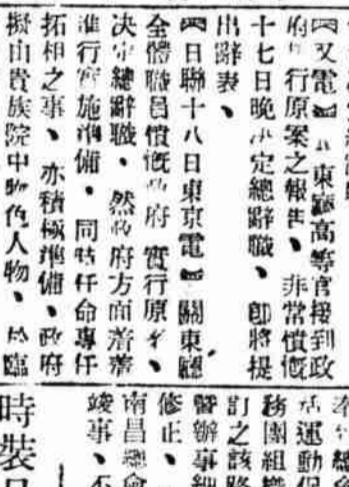 【又電】東廳高等官接到政
府行原案之報告、非常憤慨
十七日晚決定總辭職、即將提
出辭表、
【日聯十八日東京電】關東廳
全體職員憤慨政府實行原案、
決定總辭職、然政府方面着着
進行實施準備、同時任命專任
拓相之事、亦積極準備、政府
擬由貴族院中物色人物、於臨
總會
活運動
務團組織
訂之該
督辦事細
修正、
南昌總會
竣事、不
時裝